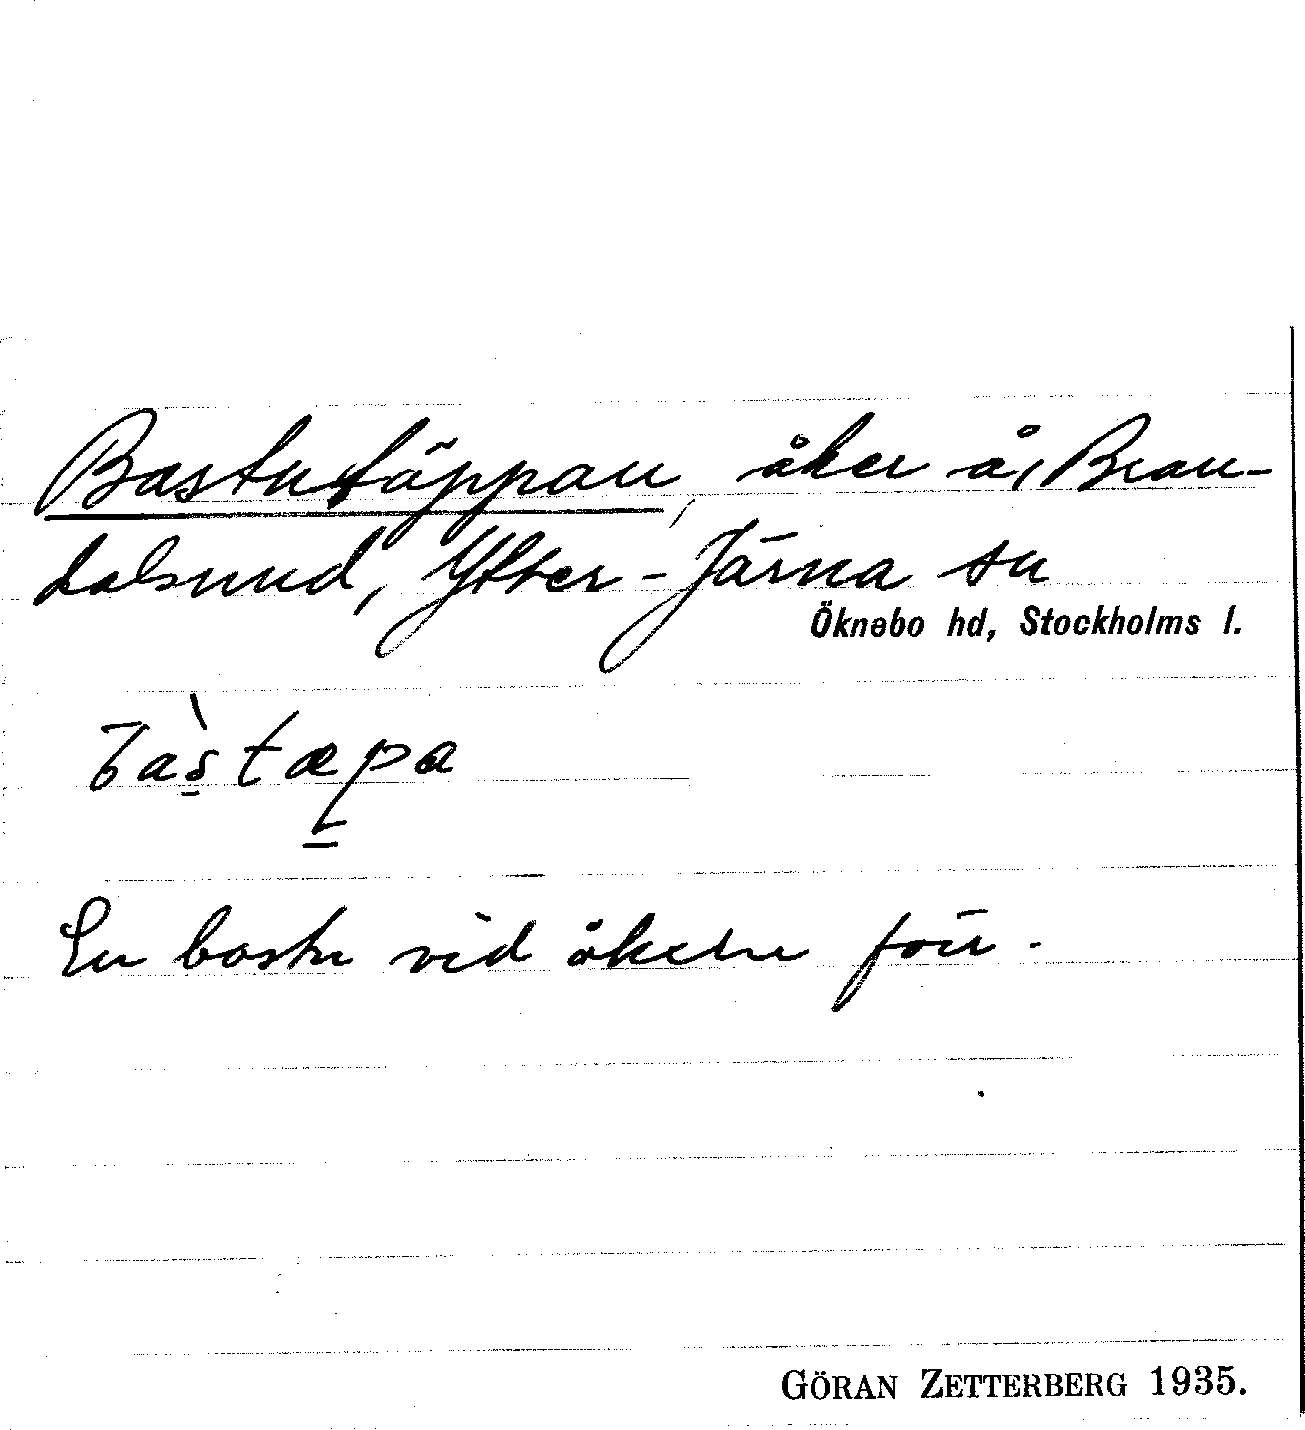 Bastutäppan, åker å, Bran-
dalsund, Ytter-Järna sn
Öknebo hd, Stockholms l.
bàstæpa
En bastu vid åkern förr.
GÖRAN ZETTERBERG 1935.